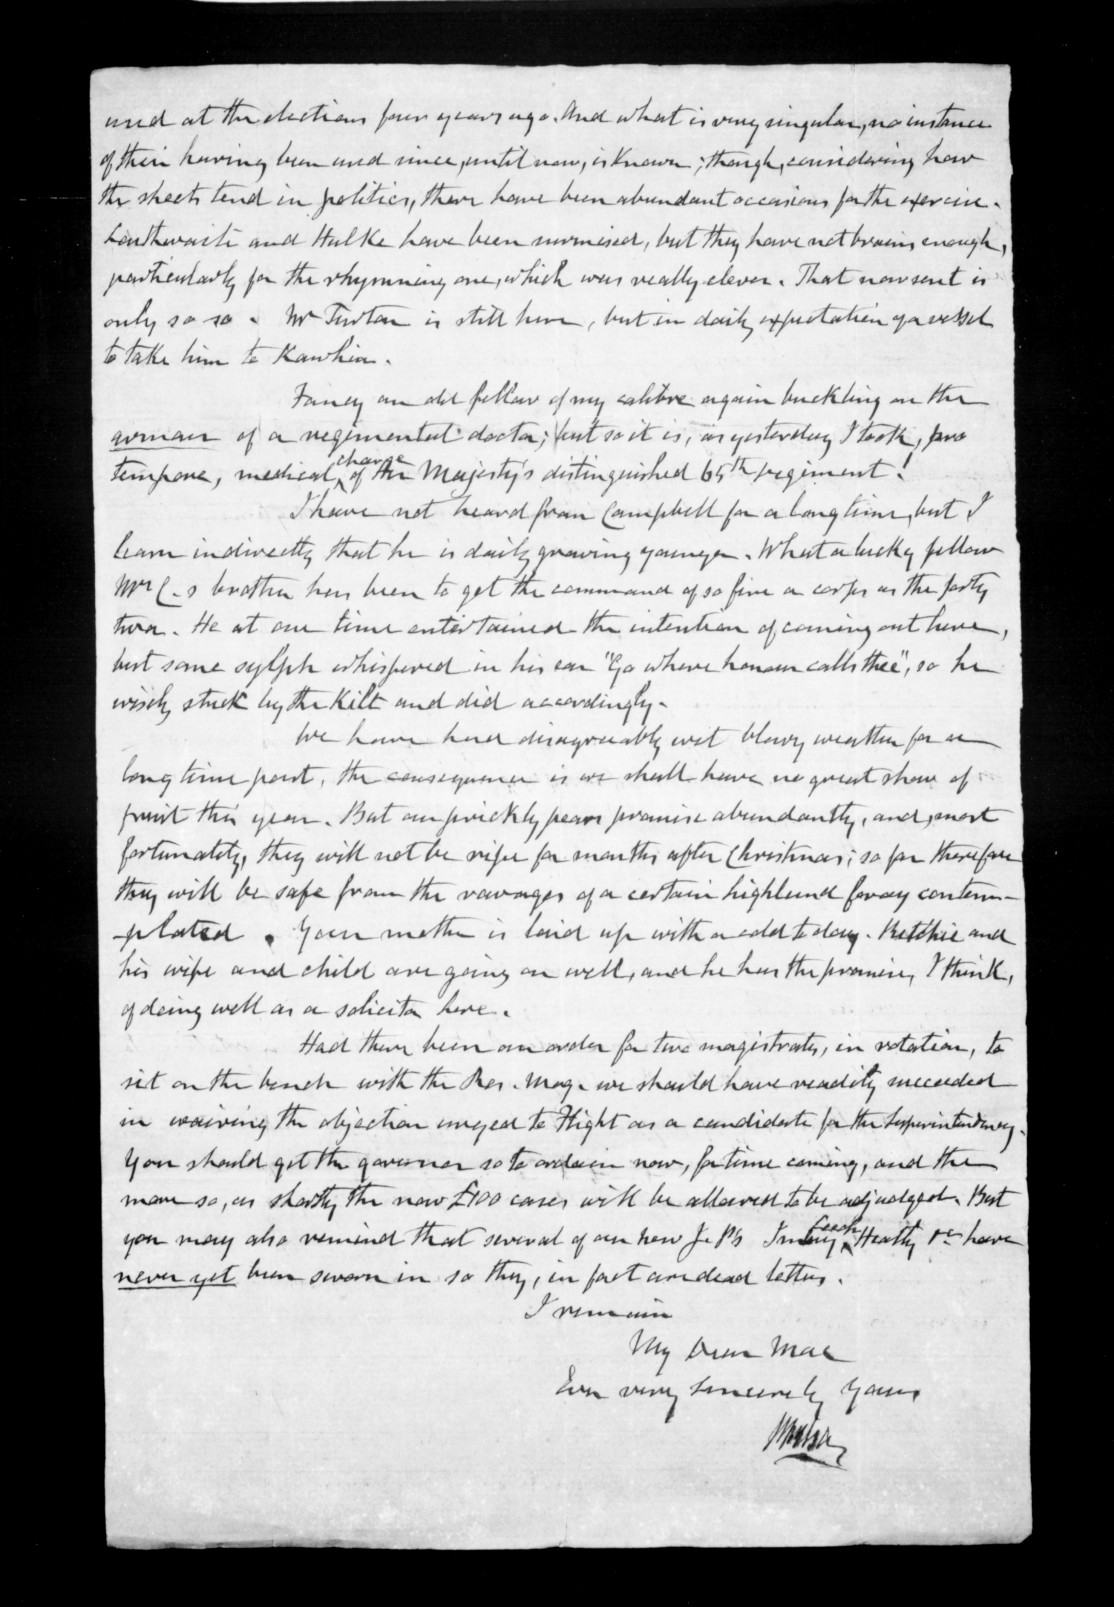 used at the elections four years ago. And what is very singular, no instance
of their having been used since, until now, is known; though, considering how
the sheets tend in politics, there have been abundant occasions for the exercise.
and Halke have been surmised, but they have not brains enough,
particularly for the rhymning one, which was really clever. That now sent is
only so so. Mr Turton is still here, but in daily expectation of a vessel
to take him to Kawhia.
Fancy an old fellow of my calibre again buckling on the
armour of a regimental doctor; but so it is, as yesterday I took, pro
tempore, medical charge of Her Majesty's distinguished 65th regiment!
I have not heard from Campbell for a long time, but I
learn indirectly that he is daily growing younger. What a lucky fellow
Mrs C-s brother has been to get the command of so fine a corps as the forty
two. He at one time entertained the intention of coming out here,
but some sylph whispered in his ear "Go where honour calls thee", so he
wisely stuck by the Kilt and did accordingly.
We have had disagreeably wet blowy weather for a
long time past, the consequence is we shall have no great show of
fruit this year. But our prickly pears promise abundantly, and, most
fortunately, they will not be ripe for months after Christmas; so far therefore
they will be safe from the ravages of a certain highland foray contem-
-plated. Your mother is laid up with a cold to day. Ritchie and
his wife and child are going on well, and he has the promise, I think,
of doing well as a solicitor here.
Had there been an order for two magistrates, in rotation, to
sit on the bench with the Res. Mag. we should have readily succeeded
in waiving the objection urged to Flight as a candidate for the Superintendency.
You should get the governor so to ordain now, for time coming, and the
more so, as shortly the now £100 cases will be allowed to be adjudged. But
you may also remind that several of our new J. P's Imlay, Leech, Heatly &c have
never yet been sworn in so they, in fact are dead letters.
I remain
My Dear Mac
Ever very sincerely yours